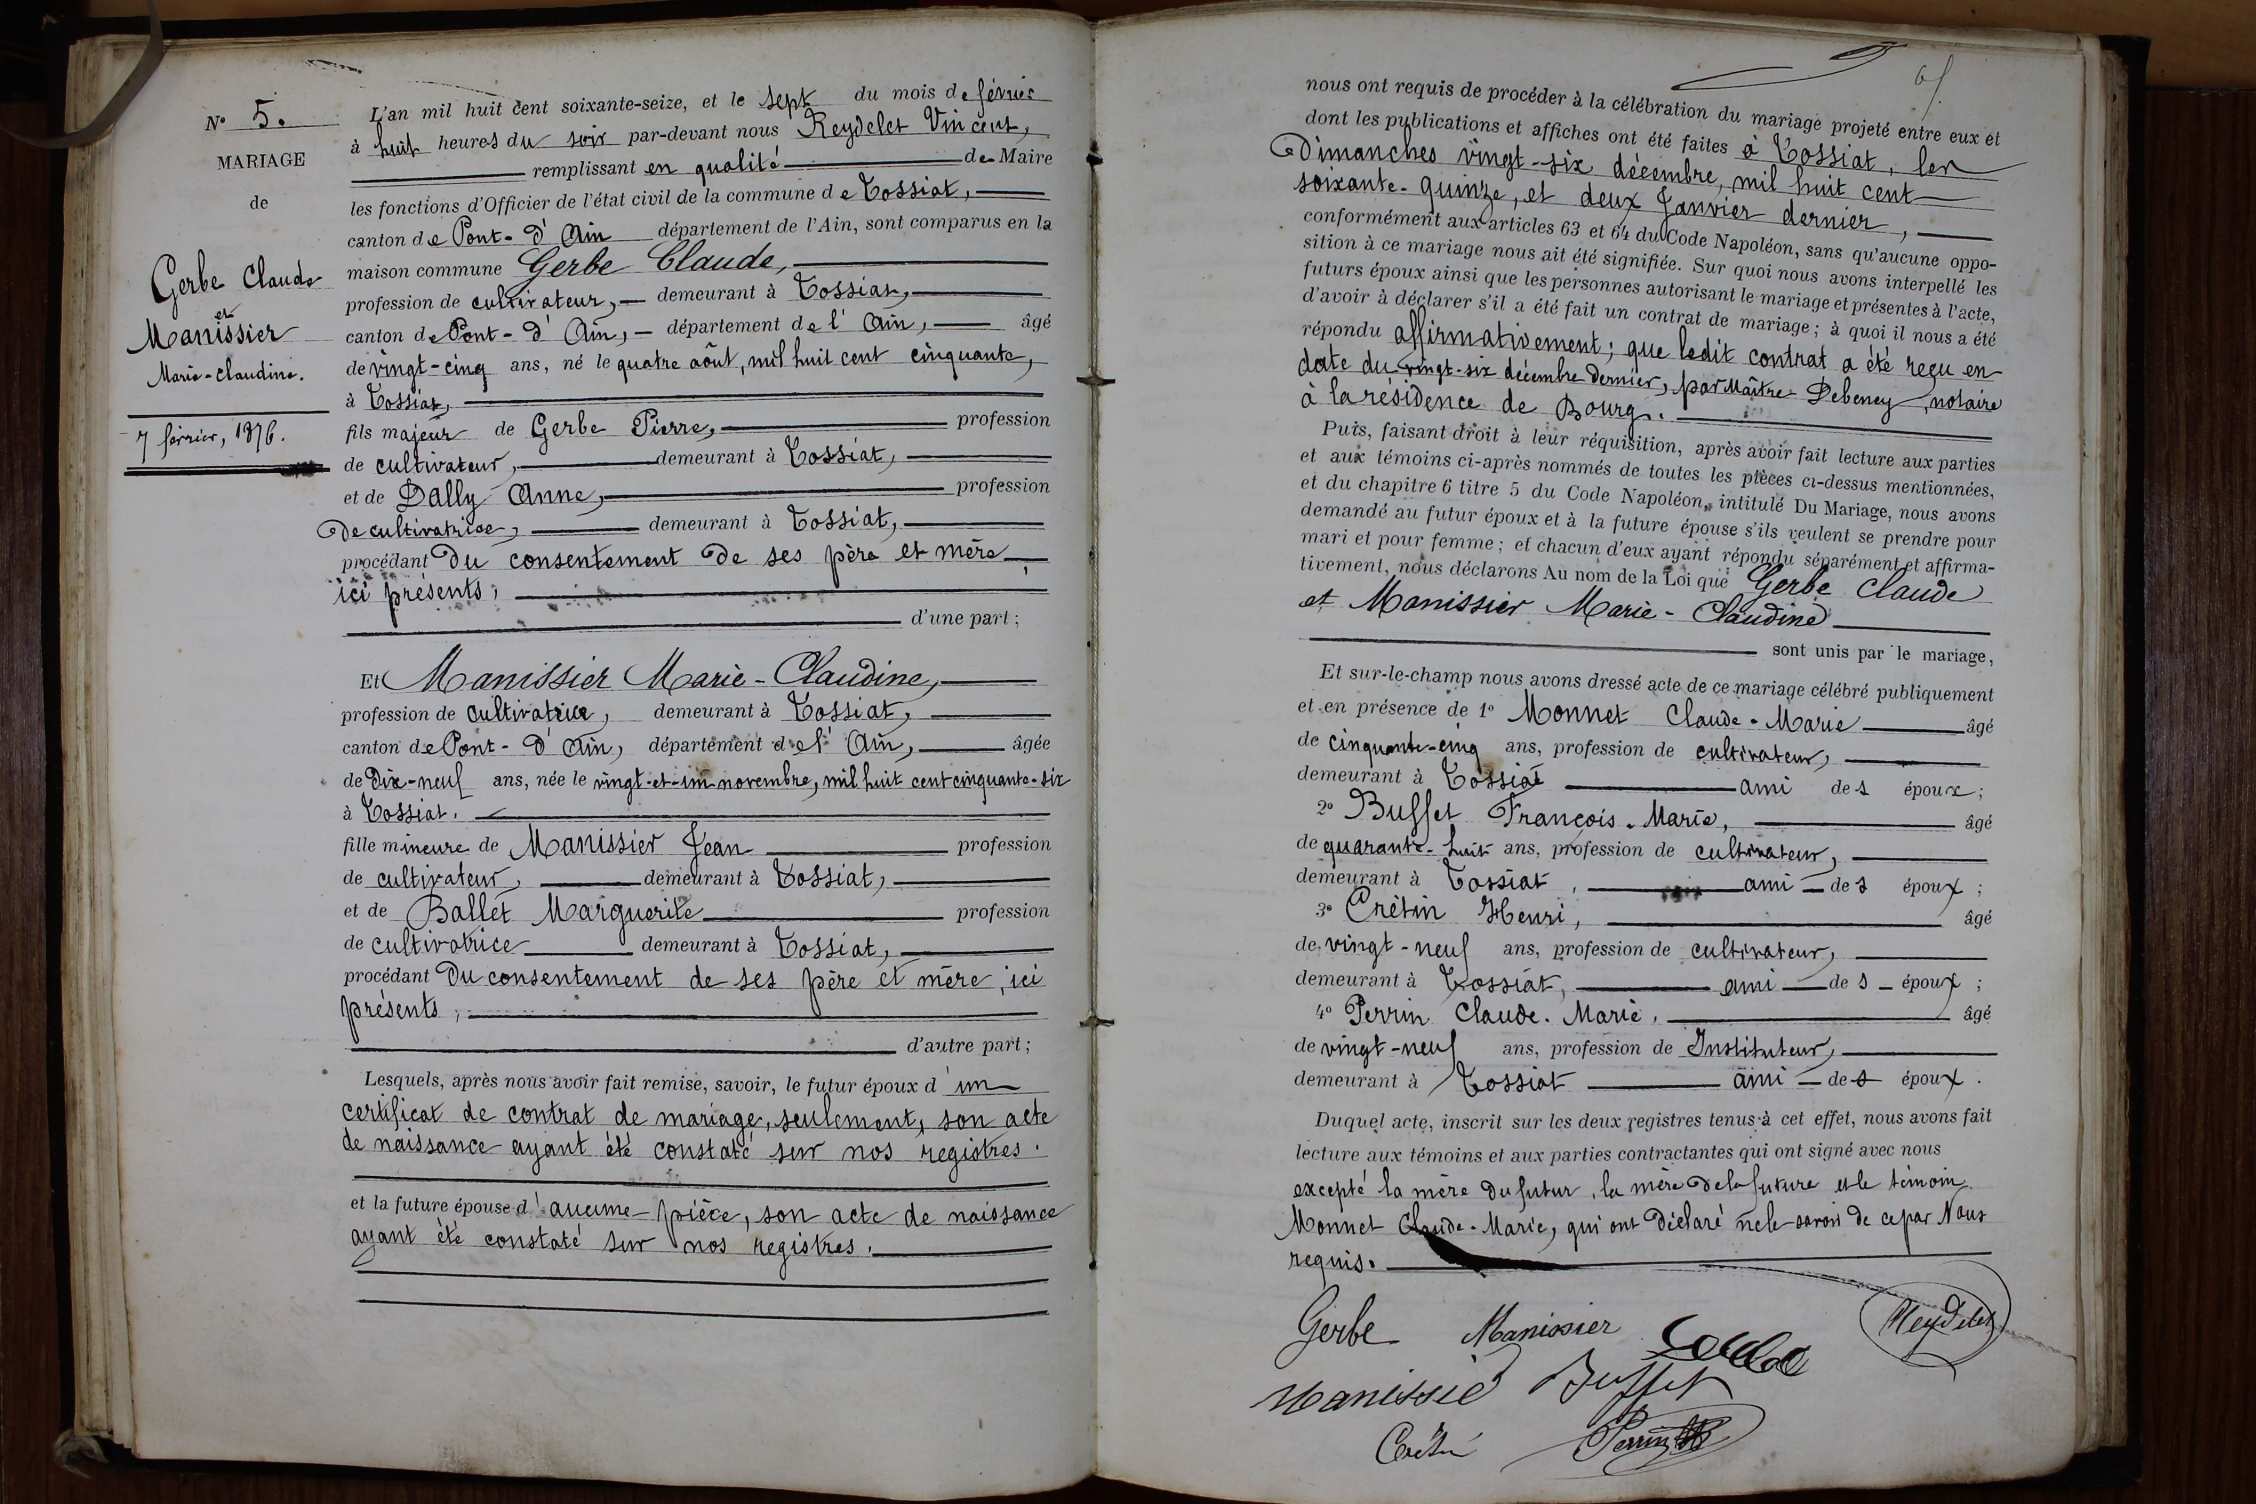 N° 5.
MARIAGE
de
Gerbe Claude
et
Manissier
Marie-Claudine.
7 février, 1876.
L'an mil huit cent soixante-seize, et le sept du mois de février
à huit heures du soir par-devant nous Reydelet Vincent,
remplissant en qualité de Maire
les fonctions d'Officier de l'état civil de la commune de Tossiat,
canton de Pont-d'Ain département de l'Ain, sont comparus en la
maison commune Gerbe Claude,
profession de cultivateur, demeurant à Tossiat,
canton de Pont-d'Ain, département de l'Ain, âgé
de vingt-cinq ans, né le quatre août, mil huit cent cinquante,
à Tossiat,
fils majeur de Gerbe Pierre, profession
de cultivateur, demeurant à Tossiat,
et de Dally Anne, profession
de cultivatrice, demeurant à Tossiat,
procédant du consentement de ses père et mère
ici présents,
d'une part;
Et Manissier Marie-Claudine,
profession de cultivatrice, demeurant à Tossiat,
canton de Pont-d'Ain, département de l'Ain, âgée
de dix-neuf ans, née le vingt-et-un novembre, mil huit cent cinquante-six
à Tossiat.
fille mineure de Manissier Jean profession
de cultivateur, demeurant à Tossiat,
et de Ballet Marguerite profession
de cultivatrice demeurant à Tossiat,
procédant du consentement de ses père et mère, ici
présents,
d'autre part;
Lesquels, après nous avoir fait remise, savoir, le futur époux d'un
certificat de contrat de mariage, seulement, son acte
de naissance ayant été constaté sur nos registres.
et la future épouse d'aucune pièce, son acte de naissance
ayant été constaté sur nos registres.
nous ont requis de procéder à la célébration du mariage projeté entre eux et
dont les publications et affiches ont été faites à Tossiat, les
dimanches vingt-six décembre, mil huit cent
soixante-quinze, et deux Janvier dernier,
conformément aux articles 63 et 64 du Code Napoléon, sans qu'aucune oppo-
sition à ce mariage nous ait été signifiée. Sur quoi nous avons interpellé les
futurs époux ainsi que les personnes autorisant le mariage et présentes à l'acte,
d'avoir à déclarer s'il a été fait un contrat de mariage; à quoi il nous a été
répondu affirmativement; que ledit contrat a été reçu en
date du vingt-six décembre dernier, par Maître Debeney, notaire
à la résidence de Bourg.
Puis, faisant droit à leur réquisition, après avoir fait lecture aux parties
et aux témoins ci-après nommés de toutes les pièces ci-dessus mentionnées,
et du chapitre 6 titre 5 du Code Napoléon, intitulé Du Mariage, nous avons
demandé au futur époux et à la future épouse s'ils veulent se prendre pour
mari et pour femme; et chacun d'eux ayant répondu séparément et affirma-
tivement, nous déclarons Au nom de la Loi que Gerbe Claude
et Manissier Marie-Claudine
sont unis par le mariage,
Et sur-le-champ nous avons dressé acte de ce mariage célébré publiquement
et en présence de 1° Monnet Claude-Marie âgé
de cinquante-cinq ans, profession de cultivateur,
demeurant à Tossiat ami des époux;
2° Buffet François-Marie, âgé
de quarante-huit ans, profession de cultivateur,
demeurant à Tossiat, ami des époux;
3° Crétin Henri, âgé
de vingt-neuf ans, profession de cultivateur,
demeurant à Tossiat, ami des époux;
4° Perrin Claude-Marie, âgé
de vingt-neuf ans, profession de Instituteur,
demeurant à Tossiat ami des époux.
Duquel acte, inscrit sur les deux registres tenus à cet effet, nous avons fait
lecture aux témoins et aux parties contractantes qui ont signé avec nous
excepté la mère du futur, la mère de la future et le témoin
Monnet Claude-Marie, qui ont déclaré ne le savoir de ce par Nous
requis.
Gerbe Manissier Reydelet
Manissié Buffet
Crétin Perrin